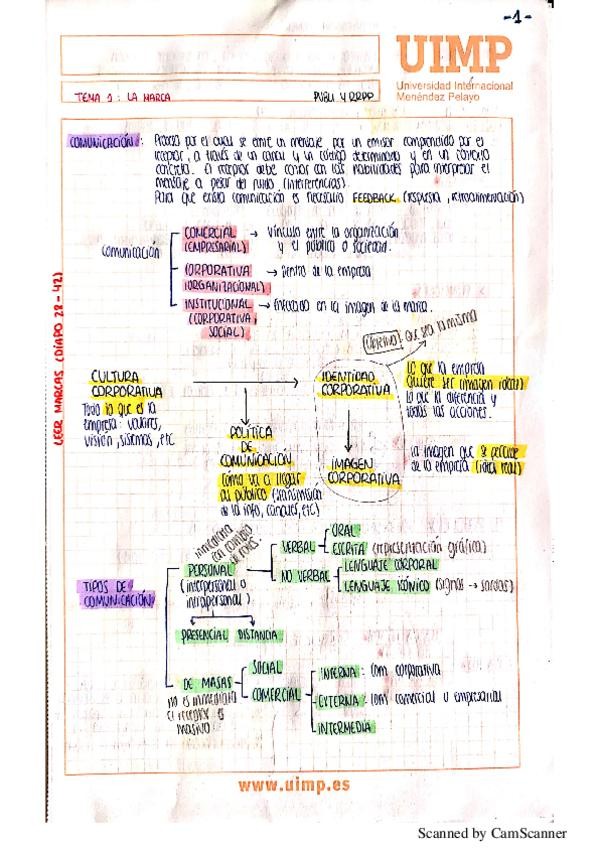 -1-
UIMP
Universidad Internacional
Menéndez Pelayo
TEMA 1: LA MARCA
PUBLI Y RRPP
COMUNICACIÓN: Proceso por el cual se emite un mensaje por un emisor comprendido por el
receptor, a través de un canal y un código determinado y en un contexto
concreto. El receptor debe contar con las habilidades para interpretar el
mensaje a pesar del ruido (interferencias).
Para que exista comunicación es necesario FEEDBACK (respuesta, retroalimentación)
comunicación
COMERCIAL → Vínculo entre la organización
(EMPRESARIAL) y el público o sociedad.
CORPORATIVA → Dentro de la empresa
(ORGANIZACIONAL)
INSTITUCIONAL → Enfocado en la imagen de la marca.
(CORPORATIVA,
SOCIAL)
LEER MARCAS (DIAPO 28-42)
OBJETIVO: que sea la misma
CULTURA
CORPORATIVA
Todo lo que es la
empresa: valores,
visión, sistemas, etc
IDENTIDAD
CORPORATIVA
Lo que la empresa
quiere ser (imagen ideal)
Lo que la diferencia y
todas las acciones.
POLÍTICA
DE
COMUNICACIÓN
Cómo va a llegar
al público (transmisión
de la info, canales, etc)
IMAGEN
CORPORATIVA
La imagen que se percibe
de la empresa (idea real)
TIPOS DE
COMUNICACIÓN
inmediata
con cambio
de roles
PERSONAL
(interpersonal o
intrapersonal)
VERBAL
ORAL
ESCRITA (representación gráfica)
NO VERBAL
LENGUAJE CORPORAL
LENGUAJE ICÓNICO (signos → sordos)
PRESENCIAL DISTANCIA
DE MASAS
no es inmediata
el receptor es
masivo
SOCIAL
COMERCIAL
INTERNA: com corporativa
EXTERNA: com comercial o empresarial
INTERMEDIA
www.uimp.es
Scanned by CamScanner